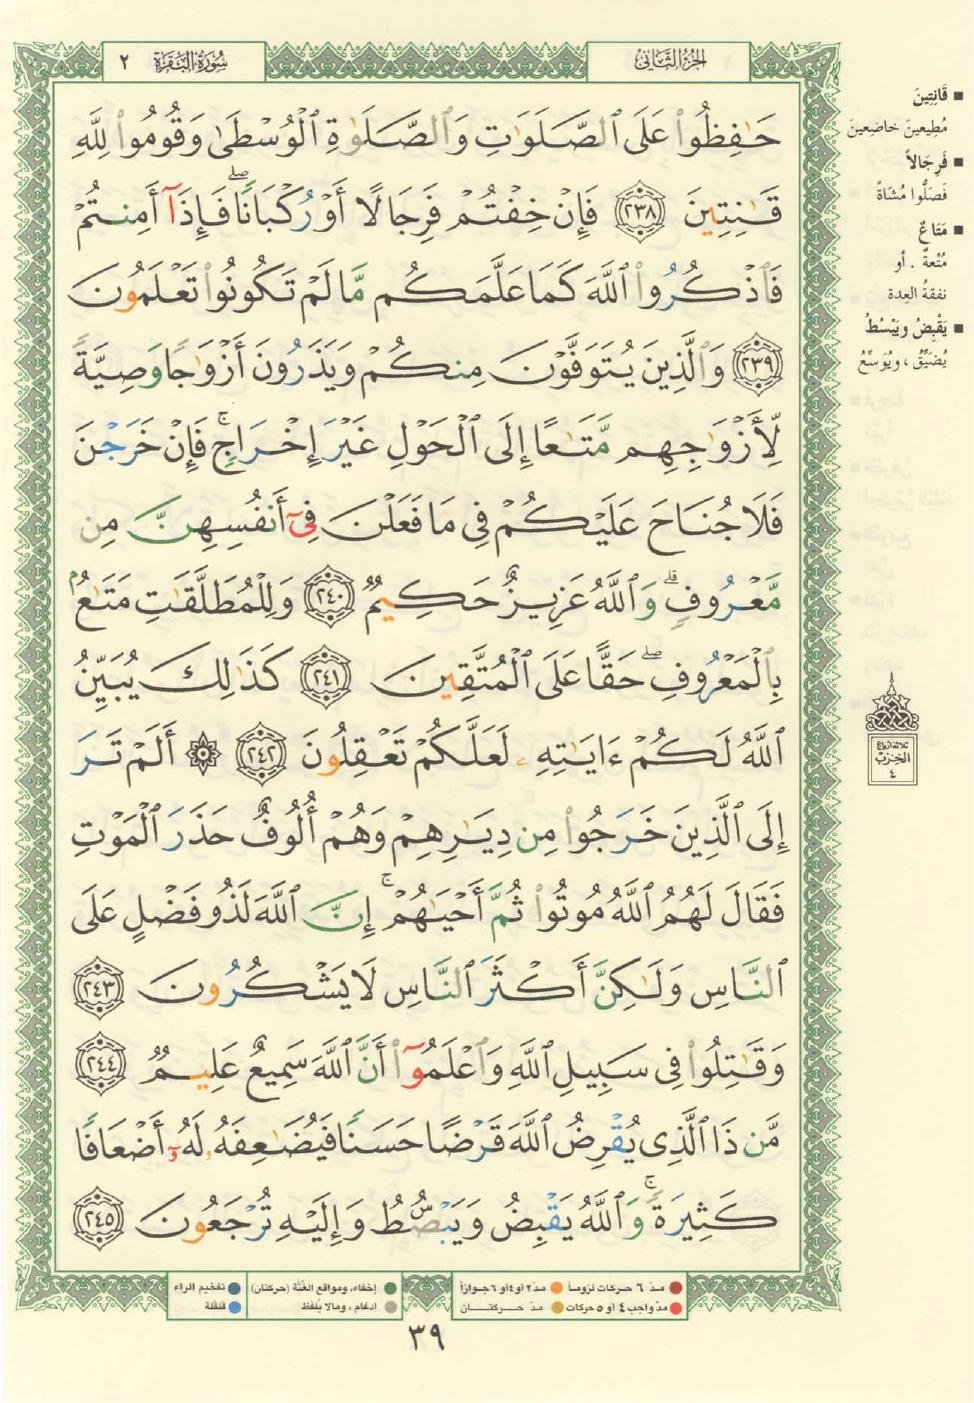 سُورَةُ البَقَرَة ٢
الجُزْءُ الثَّانِي
حَٰفِظُوا۟ عَلَى ٱلصَّلَوَٰتِ وَٱلصَّلَوٰةِ ٱلْوُسْطَىٰ وَقُومُوا۟ لِلَّهِ
قَٰنِتِينَ ٢٣٨ فَإِنْ خِفْتُمْ فَرِجَالًا أَوْ رُكْبَانًا ۖ فَإِذَآ أَمِنتُمْ
فَٱذْكُرُوا۟ ٱللَّهَ كَمَا عَلَّمَكُم مَّا لَمْ تَكُونُوا۟ تَعْلَمُونَ
٢٣٩ وَٱلَّذِينَ يُتَوَفَّوْنَ مِنكُمْ وَيَذَرُونَ أَزْوَٰجًا وَصِيَّةً
لِّأَزْوَٰجِهِم مَّتَٰعًا إِلَى ٱلْحَوْلِ غَيْرَ إِخْرَاجٍ ۚ فَإِنْ خَرَجْنَ
فَلَا جُنَاحَ عَلَيْكُمْ فِى مَا فَعَلْنَ فِىٓ أَنفُسِهِنَّ مِن
مَّعْرُوفٍ ۗ وَٱللَّهُ عَزِيزٌ حَكِيمٌ ٢٤٠ وَلِلْمُطَلَّقَٰتِ مَتَٰعٌۢ
بِٱلْمَعْرُوفِ ۖ حَقًّا عَلَى ٱلْمُتَّقِينَ ٢٤١ كَذَٰلِكَ يُبَيِّنُ
ٱللَّهُ لَكُمْ ءَايَٰتِهِۦ لَعَلَّكُمْ تَعْقِلُونَ ٢٤٢ ۞ أَلَمْ تَرَ
إِلَى ٱلَّذِينَ خَرَجُوا۟ مِن دِيَٰرِهِمْ وَهُمْ أُلُوفٌ حَذَرَ ٱلْمَوْتِ
فَقَالَ لَهُمُ ٱللَّهُ مُوتُوا۟ ثُمَّ أَحْيَٰهُمْ ۚ إِنَّ ٱللَّهَ لَذُو فَضْلٍ عَلَى
ٱلنَّاسِ وَلَٰكِنَّ أَكْثَرَ ٱلنَّاسِ لَا يَشْكُرُونَ ٢٤٣
وَقَٰتِلُوا۟ فِى سَبِيلِ ٱللَّهِ وَٱعْلَمُوٓا۟ أَنَّ ٱللَّهَ سَمِيعٌ عَلِيمٌ ٢٤٤
مَّن ذَا ٱلَّذِى يُقْرِضُ ٱللَّهَ قَرْضًا حَسَنًا فَيُضَٰعِفَهُۥ لَهُۥٓ أَضْعَافًا
كَثِيرَةً ۚ وَٱللَّهُ يَقْبِضُ وَيَبْصُۜطُ وَإِلَيْهِ تُرْجَعُونَ ٢٤٥
■ قَانِتِينَ
مُطِيعينَ خاضعينَ
■ فَرِجَالاً
فَصَلُّوا مُشَاةً
■ مَتَاعٌ
مُتْعةٌ . أو
نفقةُ العِدة
■ يَقْبِضُ ويَبْسُطُ
يُضَيِّقُ ، ويُوَسِّعُ
ثلاثة أرباع
الحِزب
٤
مدّ ٦ حركات لزوماً
مدّ ٢ أو ٤ أو ٦ جوازاً
إخفاء، ومواقع الغُنَّة (حركتان)
تفخيم الراء
مدّ واجب ٤ أو ٥ حركات
مدّ حركتان
ادغام ، ومالا يُلفَظ
قلقلة
٣٩